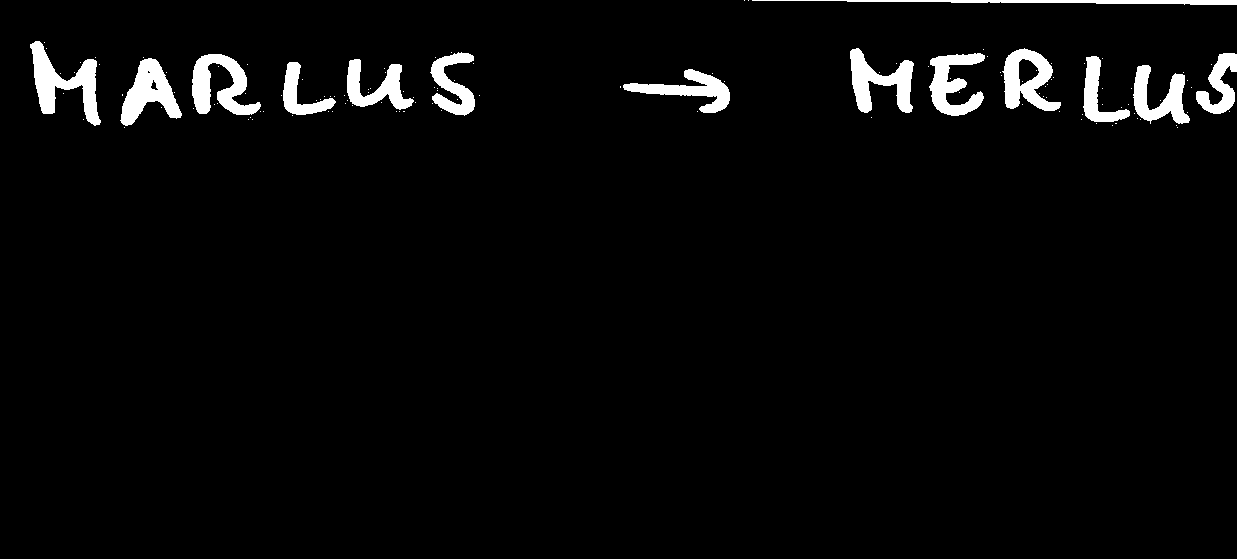 MARLUS → MERLUS